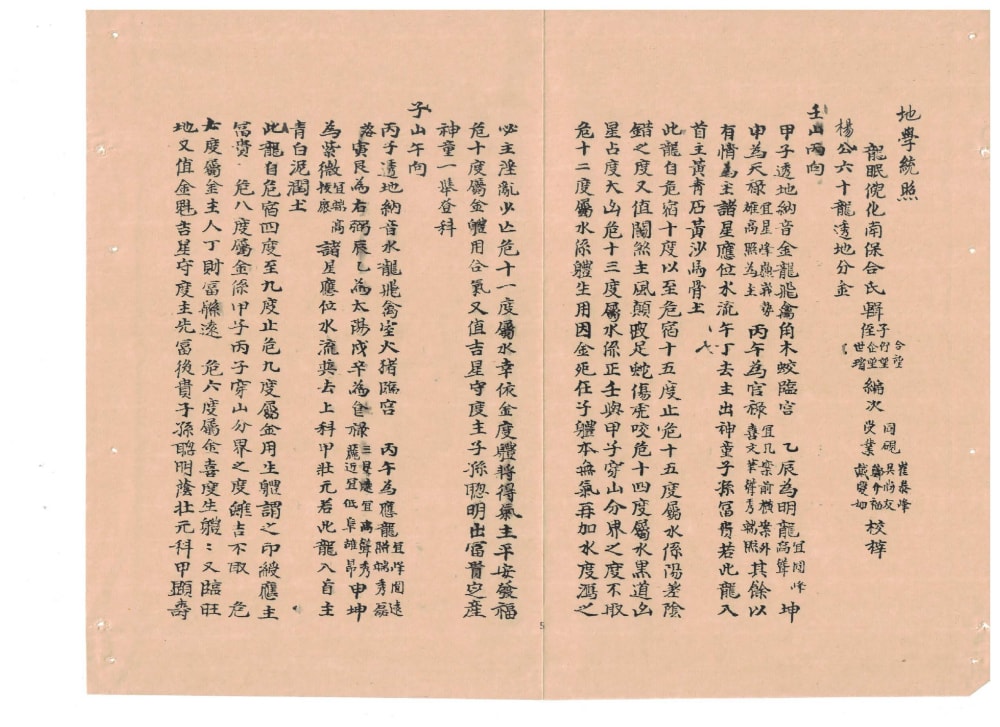 地學統照
龍眠倪化南保合氏輯 子行望 合望 侄企望 世瑠 編次 同硯 受業 崔泰峰 吳尚友 戴燮初 校梓
楊公六十龍透地分金
壬山丙向
甲子透地納音金龍飛禽角木蛟臨宮 乙辰為明龍宜圓峰高聳坤
申為天祿宜星峰照為主 丙午為官祿宜几案前橫案外喜文筆聳秀端照其餘以
有情為主諸星應位水流午丁去主出神童子孫富貴若此龍入
首主黃青石黃沙馬骨土
此龍自危宿十度以至危宿十五度止危十五度屬水係陽差陰
錯之度又值闌煞主風顛跛足蛇傷虎咬危十四度屬水黑道凶
星占度大凶危十三度屬水係正壬與甲子穿山分界之度不取
危十二度屬水係體生用因金死在子體本無氣再加水度瀉之
必主淫亂少亡危十一度屬水幸依金度體將得氣主平安發福
危十度屬金體用合氣又值吉星守度主子孫聰明出富貴定產
神童一舉登科
子山午向
丙子透地納音水龍飛禽室火猪臨宮 丙午為應龍宜峰圓遠 秀磊
落寅艮為右弼辰乙為太陽戌辛為食祿宜高聳秀麗近宜低阜雄昂申坤
為紫微宜端高諸星應位水流巽去上科甲壯元若此龍入首主
青白泥潤土
此龍自危宿四度至九度止危九度屬金用生體謂之印綬應主
富貴 危八度屬金係甲子丙子穿山分界之度雖吉不取 危
七度屬金主人丁財富綿遠 危六度屬金喜度生體又臨旺
地又值金魁吉星守度主先富後貴子孫聰明蔭壯元科甲顯壽